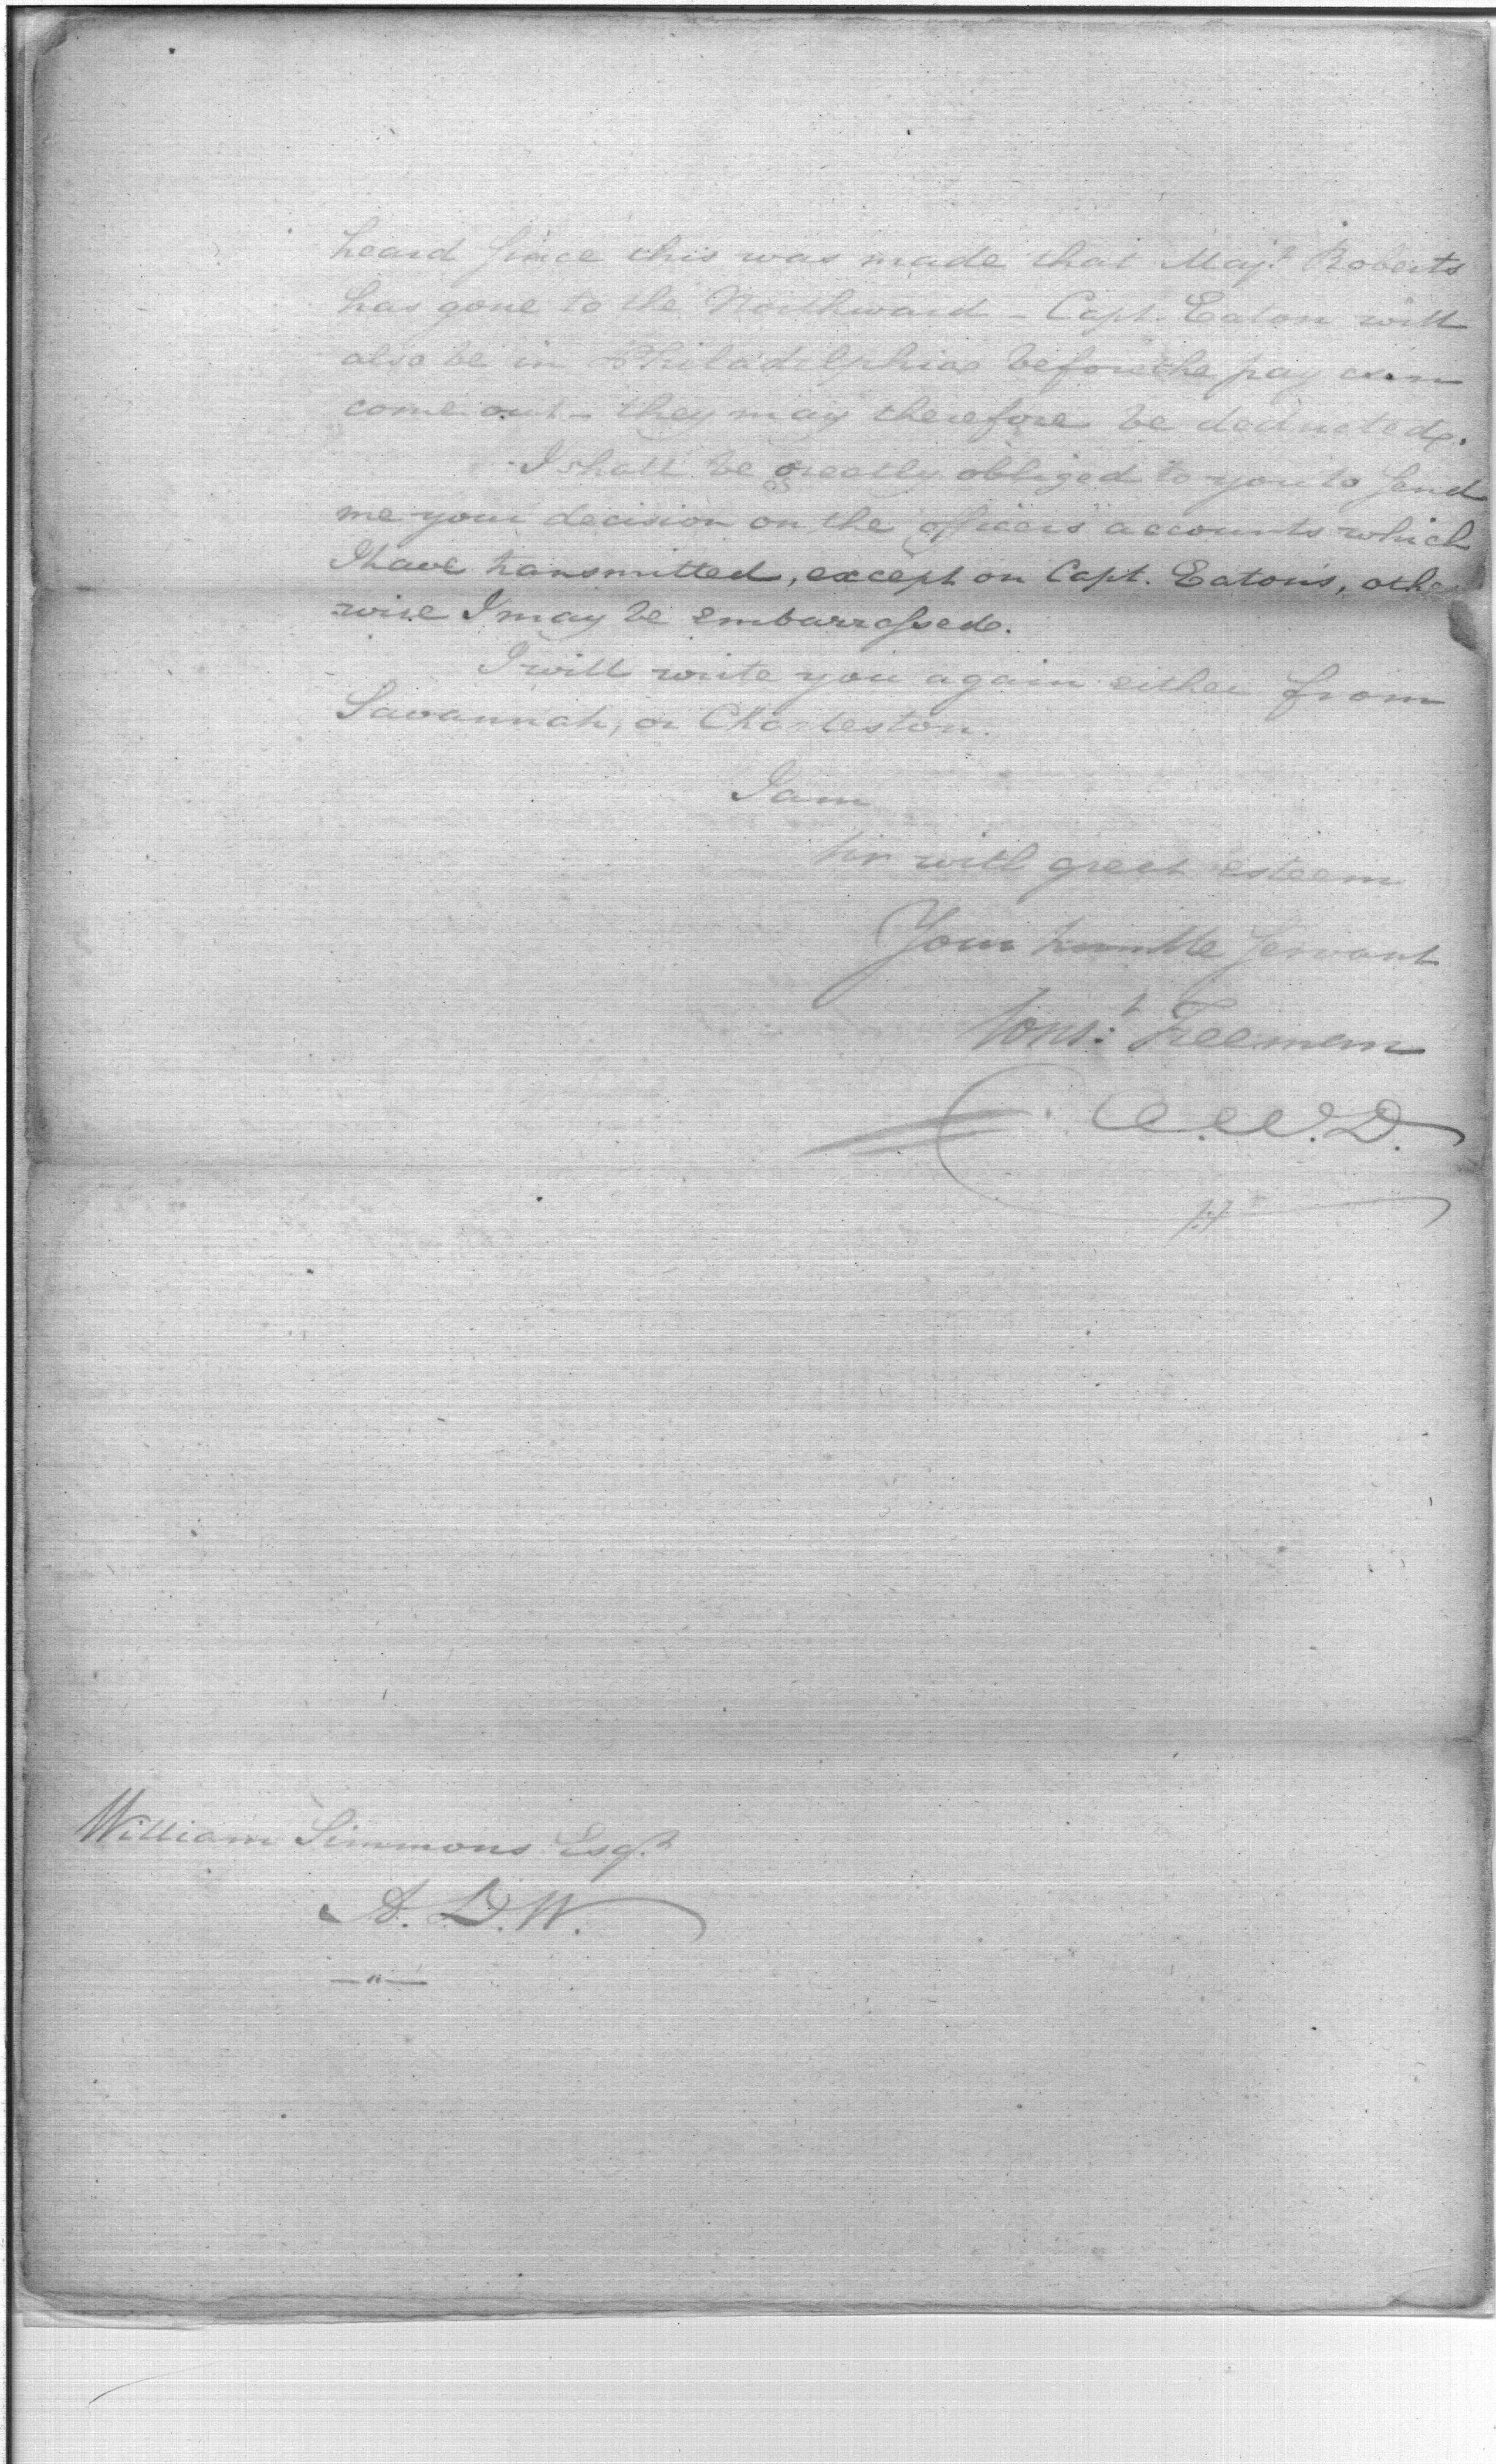 heard since this was made that Majr. Roberts
has gone to the Northward - Capt. Eaton will
also be in Philadelphia before the pay can
come out - they may therefore be deducted.
I shall be greatly obliged to you to send
me your decision on the officers accounts which
I have transmitted, except on Capt. Eaton's, other
-wise I may be embarrassed.
I will write you again either from
Savannah, or Charleston.
I am
Sir with great esteem
Your humble servant
Const. Freeman
A.W.D.
William Simmons Esqr.
A. D. W.